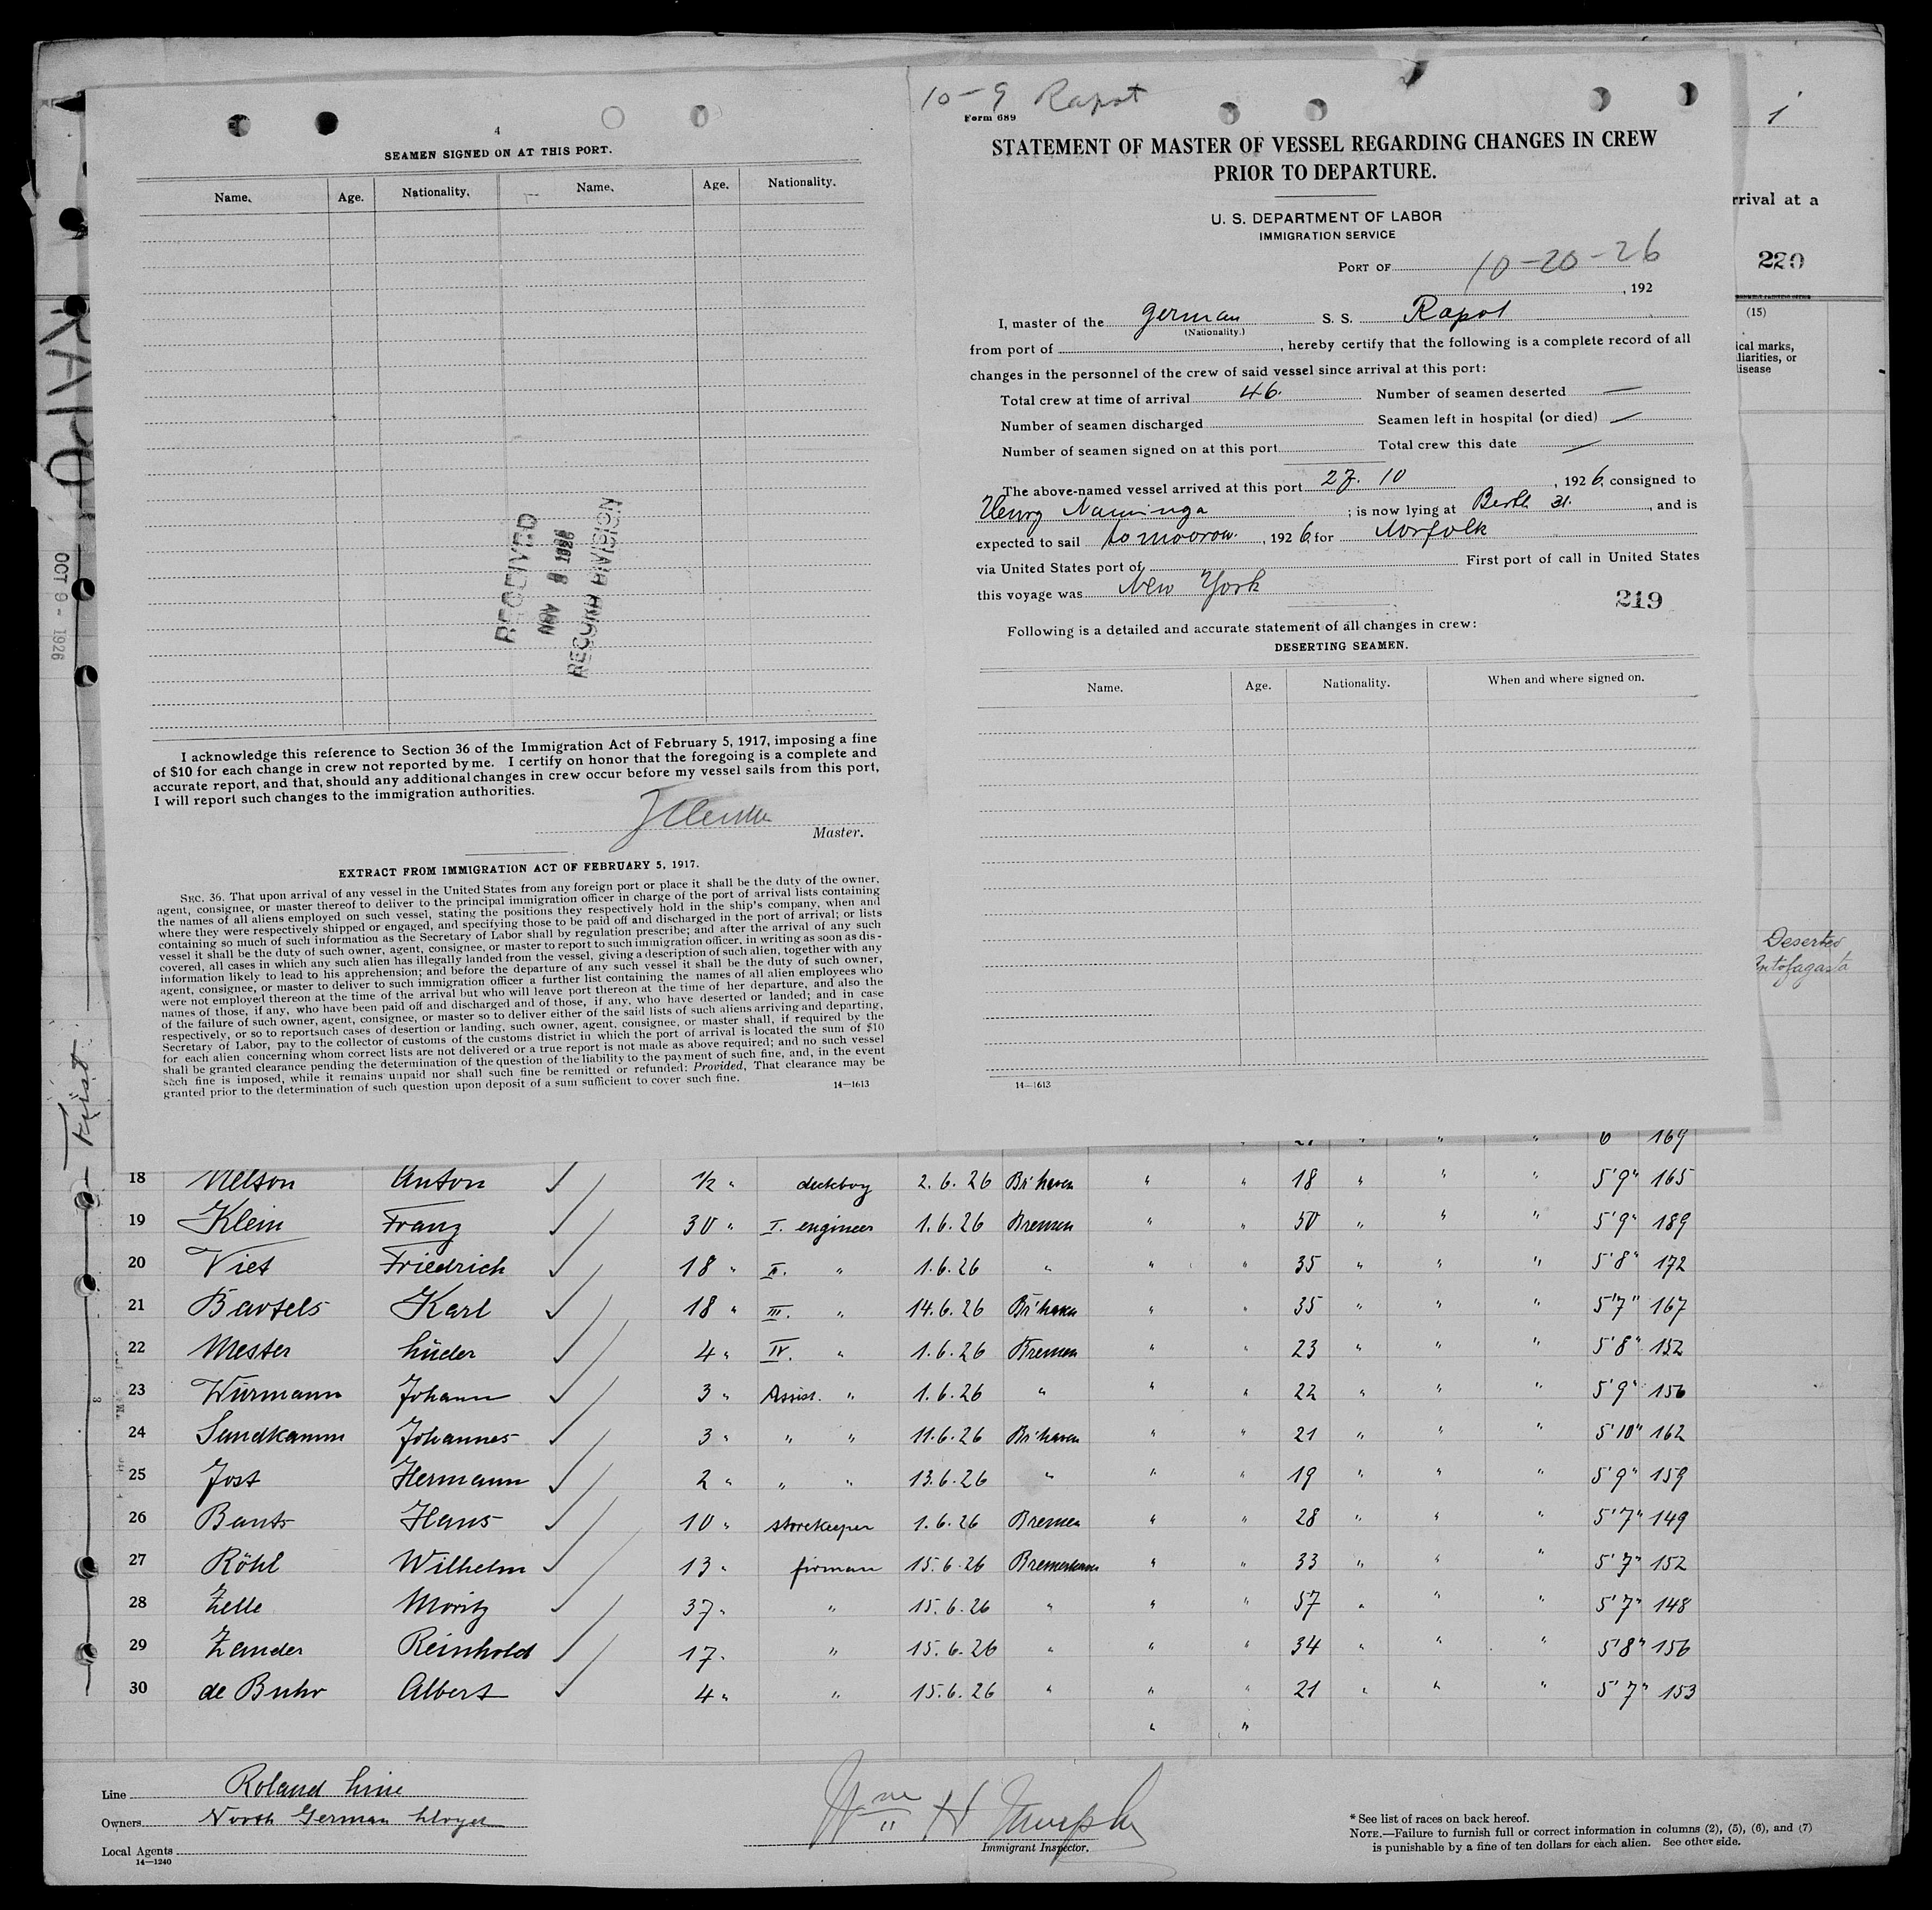 4
SEAMEN SIGNED ON AT THIS PORT.
Name. Age. Nationality. Name. Age. Nationality.
RECEIVED
NOV 8 1926
RECORD DIVISION
I acknowledge this reference to Section 36 of the Immigration Act of February 5, 1917, imposing a fine
of $10 for each change in crew not reported by me. I certify on honor that the foregoing is a complete and
accurate report, and that, should any additional changes in crew occur before my vessel sails from this port,
I will report such changes to the immigration authorities.
Master.
EXTRACT FROM IMMIGRATION ACT OF FEBRUARY 5, 1917.
SEC. 36. That upon arrival of any vessel in the United States from any foreign port or place it shall be the duty of the owner,
agent, consignee, or master thereof to deliver to the principal immigration officer in charge of the port of arrival lists containing
the names of all aliens employed on such vessel, stating the positions they respectively hold in the ship's company, when and
where they were respectively shipped or engaged, and specifying those to be paid off and discharged in the port of arrival; or lists
containing so much of such information as the Secretary of Labor shall by regulation prescribe; and after the arrival of any such
vessel it shall be the duty of such owner, agent, consignee, or master to report to such immigration officer, in writing as soon as dis-
covered, all cases in which any such alien has illegally landed from the vessel, giving a description of such alien, together with any
information likely to lead to his apprehension; and before the departure of any such vessel it shall be the duty of such owner,
agent, consignee, or master to deliver to such immigration officer a further list containing the names of all alien employees who
were not employed thereon at the time of the arrival but who will leave port thereon at the time of her departure, and also the
names of those, if any, who have been paid off and discharged and of those, if any, who have deserted or landed; and in case
of the failure of such owner, agent, consignee, or master so to deliver either of the said lists of such aliens arriving and departing,
respectively, or so to reportsuch cases of desertion or landing, such owner, agent, consignee, or master shall, if required by the
Secretary of Labor, pay to the collector of customs of the customs district in which the port of arrival is located the sum of $10
for each alien concerning whom correct lists are not delivered or a true report is not made as above required; and no such vessel
shall be granted clearance pending the determination of the question of the liability to the payment of such fine, and, in the event
such fine is imposed, while it remains unpaid nor shall such fine be remitted or refunded: Provided, That clearance may be
granted prior to the determination of such question upon deposit of a sum sufficient to cover such fine.
14—1613
10-9 Rapot
Form 689
STATEMENT OF MASTER OF VESSEL REGARDING CHANGES IN CREW
PRIOR TO DEPARTURE.
U. S. DEPARTMENT OF LABOR
IMMIGRATION SERVICE
PORT OF 10-20-26
, 192
I, master of the german S. S. Rapot
(Nationality.)
from port of , hereby certify that the following is a complete record of all
changes in the personnel of the crew of said vessel since arrival at this port:
Total crew at time of arrival 46. Number of seamen deserted —
Number of seamen discharged Seamen left in hospital (or died) —
Number of seamen signed on at this port Total crew this date —
The above-named vessel arrived at this port 27. 10 , 1926, consigned to
Henry Naminga ; is now lying at Berth 31. , and is
expected to sail tomoorow. , 1926, for Norfolk
via United States port of First port of call in United States
this voyage was New York
219
Following is a detailed and accurate statement of all changes in crew:
DESERTING SEAMEN.
Name. Age. Nationality. When and where signed on.
14—1613
1
rrival at a
220
(15)
ical marks,
liarities, or
disease
Deserted
Antofagasta
RAPOT
OCT 9 - 1926
First
6 169
18 Nelson Anton ½ " deckboy 2.6.26 Br'haven " " 18 " " " 5'9" 165
19 Klein Franz 30 " I. engineer 1.6.26 Bremen " " 50 " " " 5'9" 189
20 Viet Friedrich 18 " II. " 1.6.26 " " " 35 " " " 5'8" 172
21 Bartels Karl 18 " III. " 14.6.26 Br'haven " " 35 " " " 5'7" 167
22 Mester Lüder 4 " IV. " 1.6.26 Bremen " " 23 " " " 5'8" 152
23 Würmann Johann 3 " Assist. " 1.6.26 " " " 22 " " " 5'9" 156
24 Sundkamm Johannes 3 " " " 11.6.26 Br'haven " " 21 " " " 5'10" 162
25 Jost Hermann 2 " " " 13.6.26 " " " 19 " " " 5'9" 159
26 Bants Hans 10 " storekeeper 1.6.26 Bremen " " 28 " " " 5'7" 149
27 Röhl Wilhelm 13 " firman 15.6.26 Bremerhaven " " 33 " " " 5'7" 152
28 Zelle Moritz 37 " " 15.6.26 " " " 57 " " " 5'7" 148
29 Zander Reinhold 17 " " 15.6.26 " " " 34 " " " 5'8" 156
30 de Buhr Albert 4 " " 15.6.26 " " " 21 " " " 5'7" 153
" "
Line Roland Line
Owners North German Lloyd
Local Agents
14—1240
Wm H Murphy
Immigrant Inspector.
* See list of races on back hereof.
NOTE.—Failure to furnish full or correct information in columns (2), (5), (6), and (7)
is punishable by a fine of ten dollars for each alien. See other side.